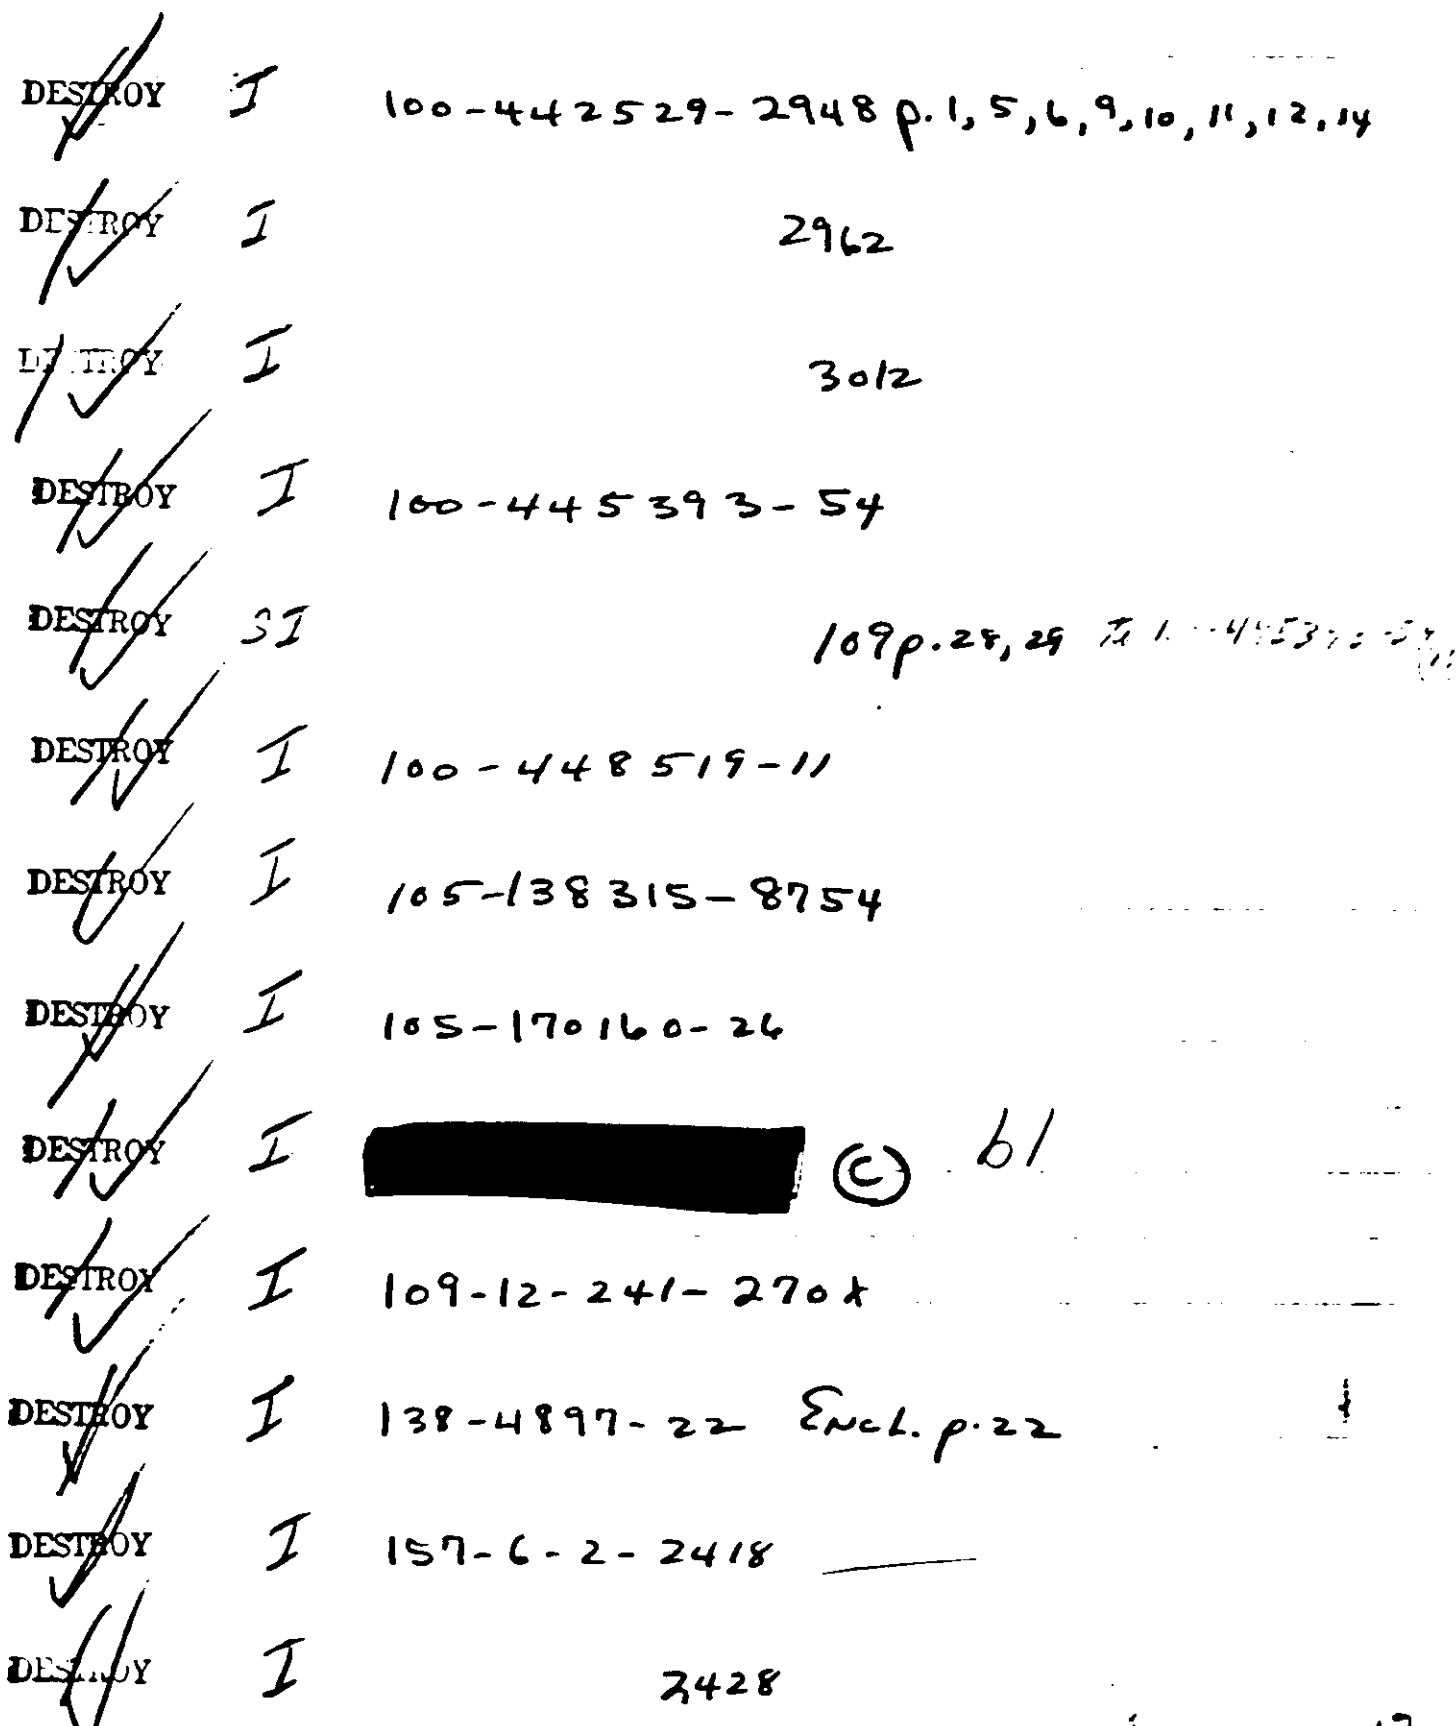 DESTROY I 100-442529-2948 p. 1, 5, 6, 9, 10, 11, 12, 14
DESTROY I 2962
DESTROY I 3012
DESTROY I 100-445393-54
DESTROY SI 109 p. 28, 29
DESTROY I 100-448519-11
DESTROY I 105-138315-8754
DESTROY I 105-170160-26
DESTROY I C b1
DESTROY I 109-12-241-270X
DESTROY I 138-4897-22 Encl. p. 22
DESTROY I 157-6-2-2418
DESTROY I 2428